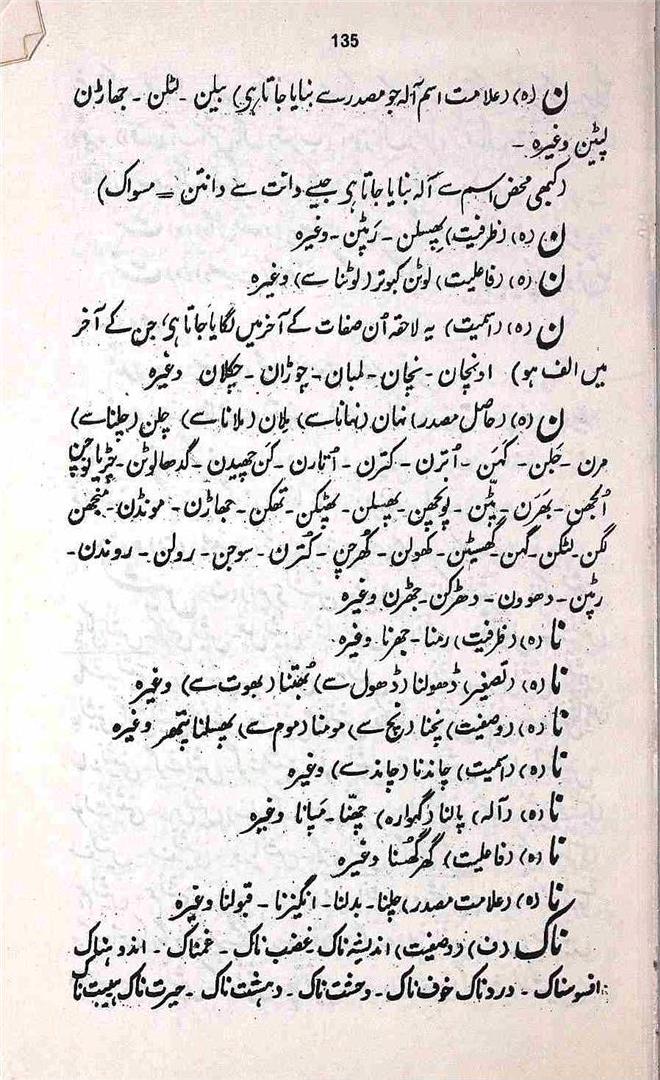 135
ن (ہ) (علامت اسم آلہ جو مصدر سے بنایا جاتا ہی) بیلن - لٹکن - جھاڑن
لپٹین وغیرہ -
(کبھی محض اسم سے آلہ بنایا جاتا ہی جیسے دانت سے دانتن = مسواک)
ن (ہ) (ظرفیت) پھسلن - رپٹن - وغیرہ
ن (ہ) (فاعلیت) لوٹن کبوتر (لوٹنا سے) وغیرہ
ن (ہ) (اسمیت) یہ لاحقہ اُن صفات کے آخر میں لگایا جاتا ہی جن کے آخر
میں الف ہو) اونچان - نچان - لمبان - چوڑان - چکلان وغیرہ
ن (ہ) (حاصل مصدر) نہان (نہانا سے) ملان (ملانا سے) چلن (چلنا سے)
مرن - جلن - کہن - اُترن - کترن - اُتارن - کن چھیدن - گدھا لوٹن - چڑیا نوچن
اُلجھن - بھرن - پٹن - پونچھن - پھسلن - پھٹکن - تھکن - جھاڑن - مونڈن - منجھن
لگن - لٹکن - گہن - گھسیٹن - کھولن - کھرچن - کُترن - سوجن - رولن - روندن -
رپٹن - دھوون - دھڑکن - جھڑن وغیرہ
نا (ہ) (ظرفیت) رمنا - جھرنا وغیرہ
نا (ہ) (تصغیر) ڈھولنا (ڈھول سے) بُھتنا (بھوت سے) وغیرہ
نا (ہ) (وصفیت) پنچنا (پنچ سے) مومنا (موم سے) پھسلنا پتھر وغیرہ
نا (ہ) (اسمیت) چاندنا (چاند سے) وغیرہ
نا (ہ) (آلہ) پالنا (گہوارہ) چھنّا - مَپانا وغیرہ
نا (ہ) (فاعلیت) گھر گھُسنا وغیرہ
نا (ہ) (علامت مصدر) چلنا - بدلنا - انگیزنا - قبولنا وغیرہ
ناک (ف) (وصفیت) اندیشہ ناک غضب ناک - غمناک - اندوہناک
افسوسناک - دردناک خوف ناک - وحشت ناک - دہشت ناک - حیرت ناک ہیبت ناک